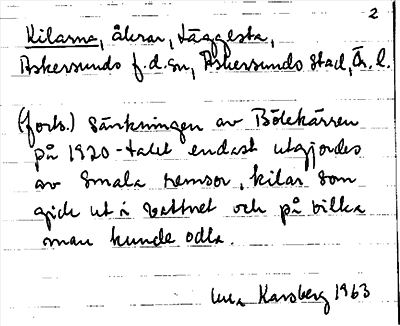 2
Kilarna, åkrar, Läggesta,
Askersunds f.d. sn, Askersunds stad, Ör. l.
(forts.) sänkningen av Bölekärren
på 1920-talet endast utgjordes
av smala remsor, kilar som
gick ut i vattnet och på vilka
man kunde odla.
Karsberg 1963